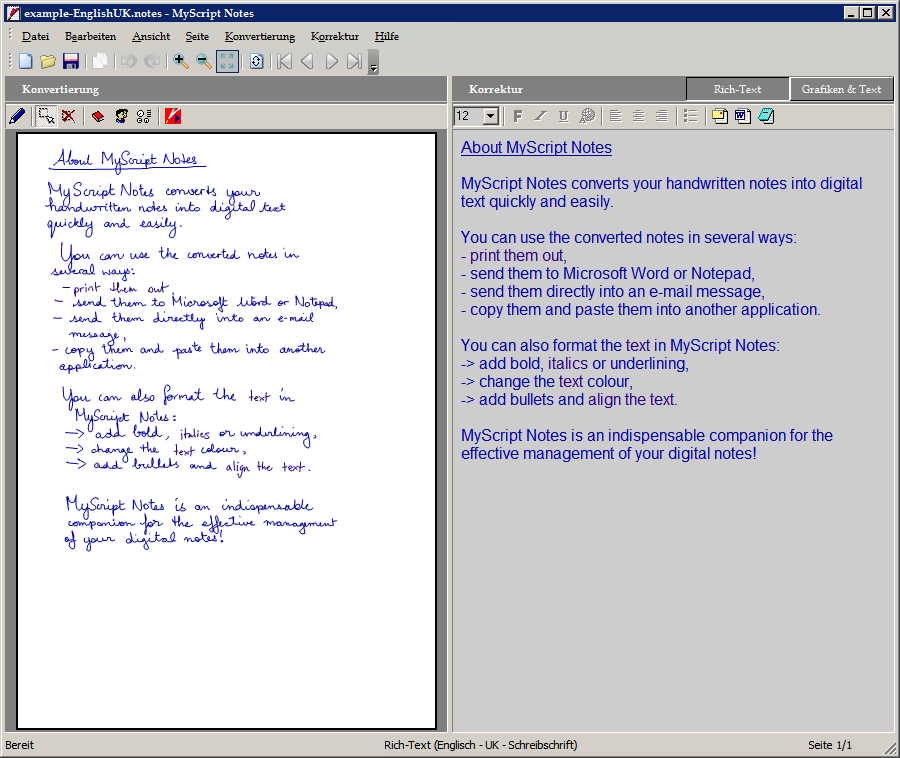 example-EnglishUK.notes - MyScript Notes
Datei Bearbeiten Ansicht Seite Konvertierung Korrektur Hilfe
Konvertierung
About MyScript Notes
MyScript Notes converts your
handwritten notes into digital text
quickly and easily.
You can use the converted notes in
several ways:
- print them out,
- send them to Microsoft Word or Notepad,
- send them directly into an e-mail
message,
- copy them and paste them into another
application.
You can also format the text in
MyScript Notes:
-> add bold, italics or underlining,
-> change the text colour,
-> add bullets and align the text.
MyScript Notes is an indispensable
companion for the effective managment
of your digital notes!
Korrektur Rich-Text Grafiken & Text
12 F I U
About MyScript Notes
MyScript Notes converts your handwritten notes into digital
text quickly and easily.
You can use the converted notes in several ways:
- print them out,
- send them to Microsoft Word or Notepad,
- send them directly into an e-mail message,
- copy them and paste them into another application.
You can also format the text in MyScript Notes:
-> add bold, italics or underlining,
-> change the text colour,
-> add bullets and align the text.
MyScript Notes is an indispensable companion for the
effective management of your digital notes!
Bereit Rich-Text (Englisch - UK - Schreibschrift) Seite 1/1